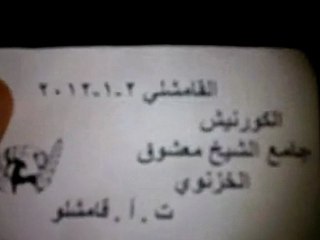 القامشلي ٢-١-٢٠١٢
الكورنيش
جامع الشيخ معشوق
الخزنوي
ت . أ . قامشلو